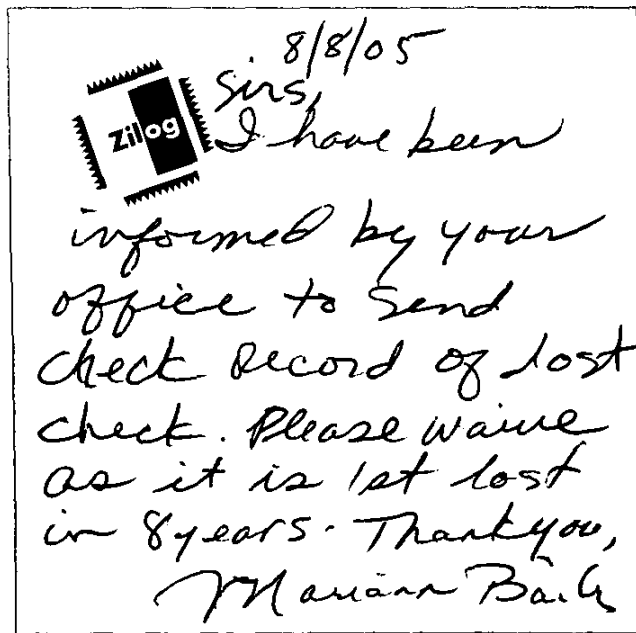 8/8/05
Sirs,
Zilog
I have been
informed by your
office to send
check record of lost
check. Please waive
as it is 1st lost
in 8 years. Thank you,
Mariann